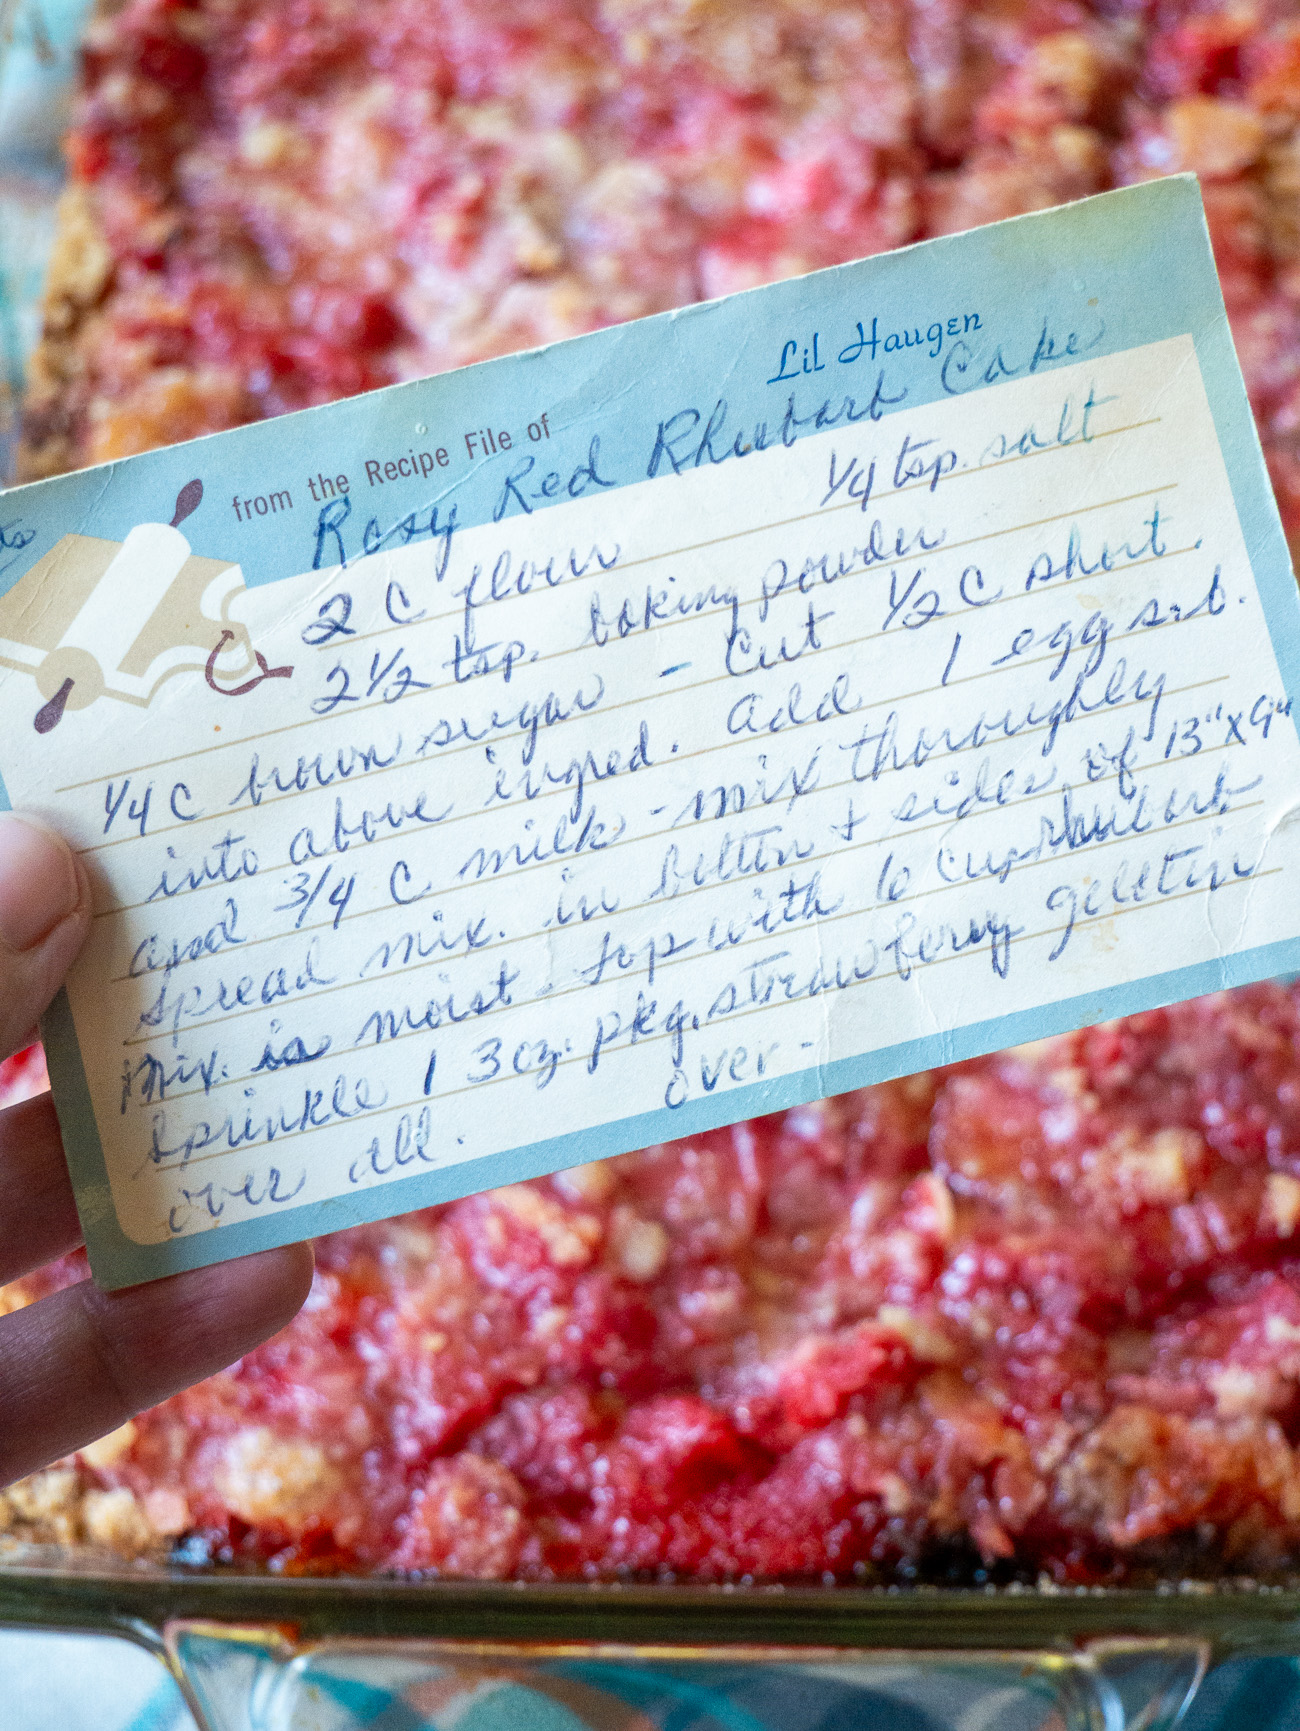 Lil Haugen
from the Recipe File of
Rosy Red Rhubarb Cake
2 C flour 1/4 tsp. salt
2 1/2 tsp. baking powder
1/4 C brown sugar - Cut 1/2 C short.
into above ingred. Add 1 egg
and 3/4 C milk - mix thoroughly
spread mix. in bottom + sides of 13" x 9"
Mix. is moist. top with 6 cups rhubarb
Sprinkle 1 3 oz. pkg. strawberry geletin
over all. over -